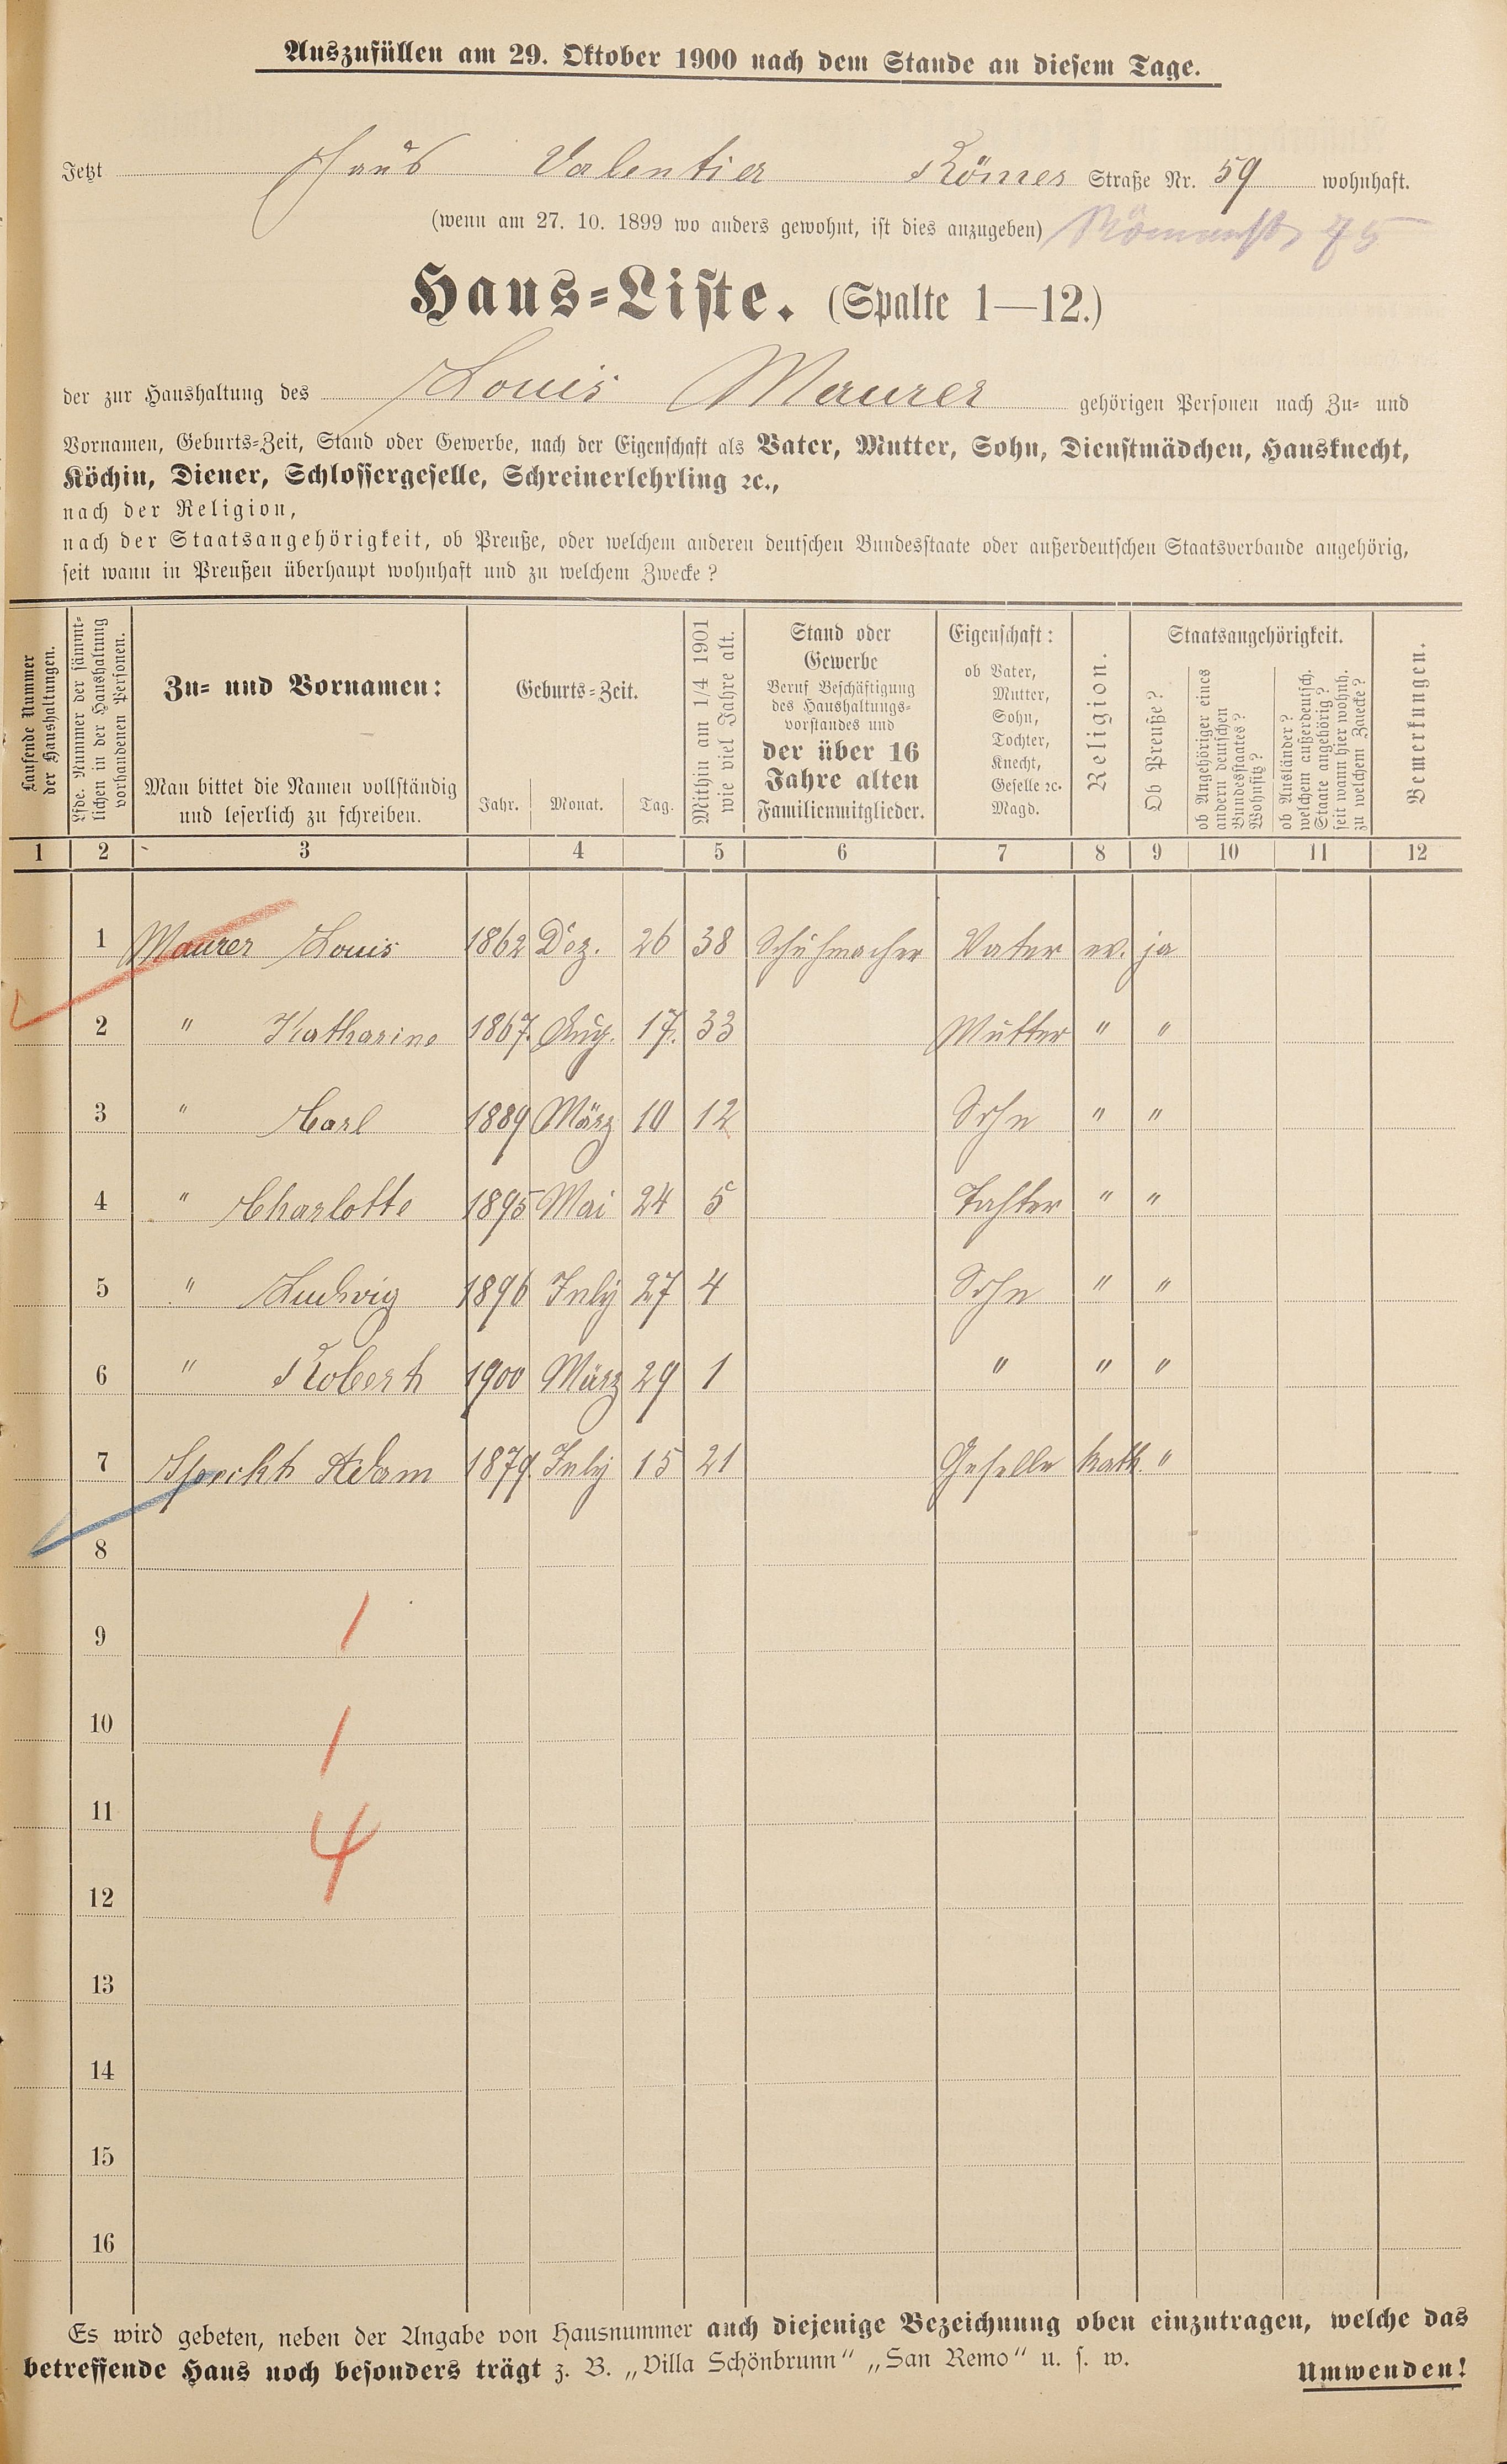 Auszufüllen am 29. Oktober 1900 nach dem Stande an diesem Tage.
Jetzt Haus Valentier Römer Straße Nr. 59 wohnhaft.
(wenn am 27. 10. 1899 wo anders gewohnt, ist dies anzugeben) Römerstr 75
Haus-Liste. (Spalte 1—12.)
der zur Haushaltung des Louis Maurer gehörigen Personen nach Zu- und
Vornamen, Geburts-Zeit, Stand oder Gewerbe, nach der Eigenschaft als Vater, Mutter, Sohn, Dienstmädchen, Hausknecht,
Köchin, Diener, Schlossergeselle, Schreinerlehrling ꝛc.,
nach der Religion,
nach der Staatsangehörigkeit, ob Preuße, oder welchem anderen deutschen Bundesstaate oder außerdeutschen Staatsverbande angehörig,
seit wann in Preußen überhaupt wohnhaft und zu welchem Zwecke?
Laufende Nummer
der Haushaltungen.
Lfde. Nummer der sämmt-
lichen in der Haushaltung
vorhandenen Personen.
Zu- und Vornamen:
Man bittet die Namen vollständig
und leserlich zu schreiben.
Geburts-Zeit.
Jahr. Monat. Tag.
Mithin am 1/4 1901
wie viel Jahre alt.
Stand oder
Gewerbe
Beruf Beschäftigung
des Haushaltungs-
vorstandes und
der über 16
Jahre alten
Familienmitglieder.
Eigenschaft:
ob Vater,
Mutter,
Sohn,
Tochter,
Knecht,
Geselle ꝛc.
Magd.
Religion.
Staatsangehörigkeit.
Ob Preuße?
ob Angehöriger eines
andern deutschen
Bundesstaates?
Wohnsitz?
ob Ausländer?
welchem außerdeutsch.
Staate angehörig?
seit wann hier wohnh.
zu welchem Zwecke?
Bemerkungen.
1 2 3 4 5 6 7 8 9 10 11 12
1 Maurer Louis 1862 Dez. 26 38 Schuhmacher Vater ev. ja
2 " Katharine 1867. Aug. 17. 33 Mutter " "
3 " Carl 1889 März 10 12 Sohn " "
4 " Charlotte 1895 Mai 24 5 Tochter " "
5 " Ludwig 1896 July 27 4 Sohn " "
6 " Robert 1900 März 29 1 " " "
7 Specht Adam 1879. July 15 21 Geselle kath. "
8
9 1
10 1
11 4
12
13
14
15
16
Es wird gebeten, neben der Angabe von Hausnummer auch diejenige Bezeichnung oben einzutragen, welche das
betreffende Haus noch besonders trägt z. B. „Villa Schönbrunn" „San Remo" u. s. w. Umwenden!